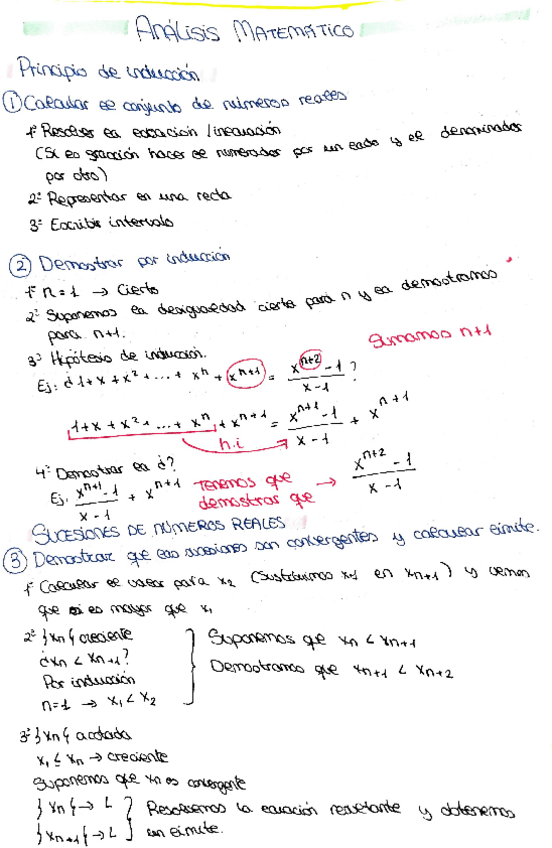 ANÁLISIS MATEMÁTICO
Principio de inducción
① Calcular el conjunto de números reales
1º Resolver la ecuación / inecuación
(Si es fracción hacer el numerador por un lado y el denominador
por otro)
2º Representar en una recta
3º Escribir intervalo
② Demostrar por inducción
1º n=1 → Cierto
2º Suponemos la desigualdad cierta para n y la demostramos
para n+1.
Sumamos n+1
3º Hipótesis de inducción.
Ej: ¿1+x+x²+...+xⁿ+xⁿ⁺¹ = (xⁿ⁺²-1)/(x-1)?
1+x+x²+...+xⁿ+xⁿ⁺¹ = (xⁿ⁺¹-1)/(x-1) + xⁿ⁺¹
h.i
4º Demostrar la ¿?
Ej. (xⁿ⁺¹-1)/(x-1) + xⁿ⁺¹ Tenemos que demostrar que → (xⁿ⁺²-1)/(x-1)
SUCESIONES DE NÚMEROS REALES
③ Demostrar que las sucesiones son convergentes y calcular límite.
1º Calcular el valor para x₂ (sustituimos x₁ en xₙ₊₁) y vemos
que si es mayor que x₁
2º }xₙ{ creciente
¿xₙ < xₙ₊₁?
Por inducción
n=1 → x₁ < x₂
Suponemos que xₙ < xₙ₊₁
Demostramos que xₙ₊₁ < xₙ₊₂
3º }xₙ{ acotada
x₁ ≤ xₙ → creciente
Suponemos que xₙ es convergente
}xₙ{ → L
}xₙ₊₁{ → L
Resolvemos la ecuación resultante y obtenemos
un límite.